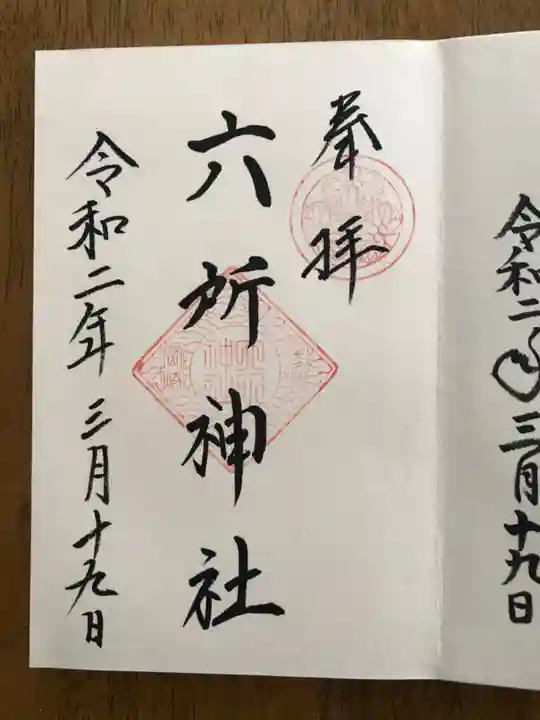 令和二年三月十九日
奉拝
六所神社
令和二年三月十九日